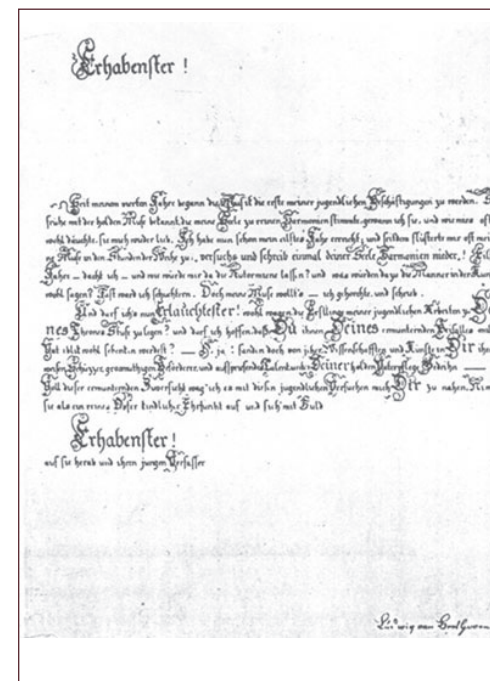 Erhabenster !
Seit meinem vierten Jahre begann die Musik die erste meiner jugendlichen Beschäftigungen zu werden.
frühe mit der holden Muse bekannt, die meine Seele zu reinen Harmonien stimmte, gewann ich sie, und wie mirs oft
wohl däuchte, sie mich wieder lieb. Ich habe nun schon mein eilftes Jahr erreicht; und seitdem flüsterte mir oft mei
ne Muse in den Stunden der Weihe zu: versuchs und schreib einmal deiner Seele Harmonien nieder !
Jahre — dacht ich — und wie würde mir da die Autormiene lassen? und was würden dazu die Männer in der Kun
wohl sagen? Fast ward ich schüchtern. Doch meine Muse wollt's — ich gehorchte, und schrieb.
Und darf ich's nun Erlauchtester! wohl wagen die Erstlinge meiner jugendlichen Arbeiten zu
nes Thrones Stufe zu legen? und darf ich hoffen, daß Du ihnen Deines ermunternden Beifalles
wohl schenken werdest? — O ja! fanden doch von jeher Wissenschafften und Künste in Dir ihre
weisen Schüzzer, grosmüthigen Beförderer, und aufsprosendes Talent unter Deiner holden Vaterpflege Gedeihn —
Voll dieser ermunternden Zuversicht wag' ich es mit diesen jugendlichen Versuchen mich Dir zu nahen. Nim
sie als ein reines Opfer kindlicher Ehrfurcht auf und sieh mit Huld
Erhabenster !
auf sie herab und ihren jungen Verfasser
Ludwig van Beethoven